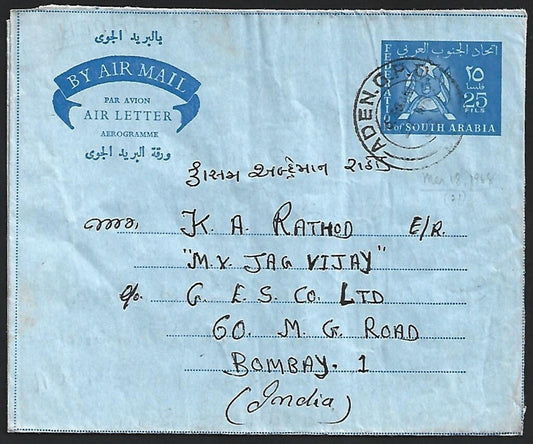 بالبريد الجوى
BY AIR MAIL
PAR AVION
AIR LETTER
AEROGRAMME
ورقة البريد الجوى
اتحاد الجنوب العربي
FEDERATION
٢٥
فلسا
25
FILS
of SOUTH ARABIA
ADEN.G.P.O.
કાસમ અબ્દ્રેમાન રાઠોડ
K. A. RATHOD E/R.
"M.V. JAG VIJAY"
c/o. G. E. S. CO. LTD
60. M. G. ROAD
BOMBAY. 1
(India)